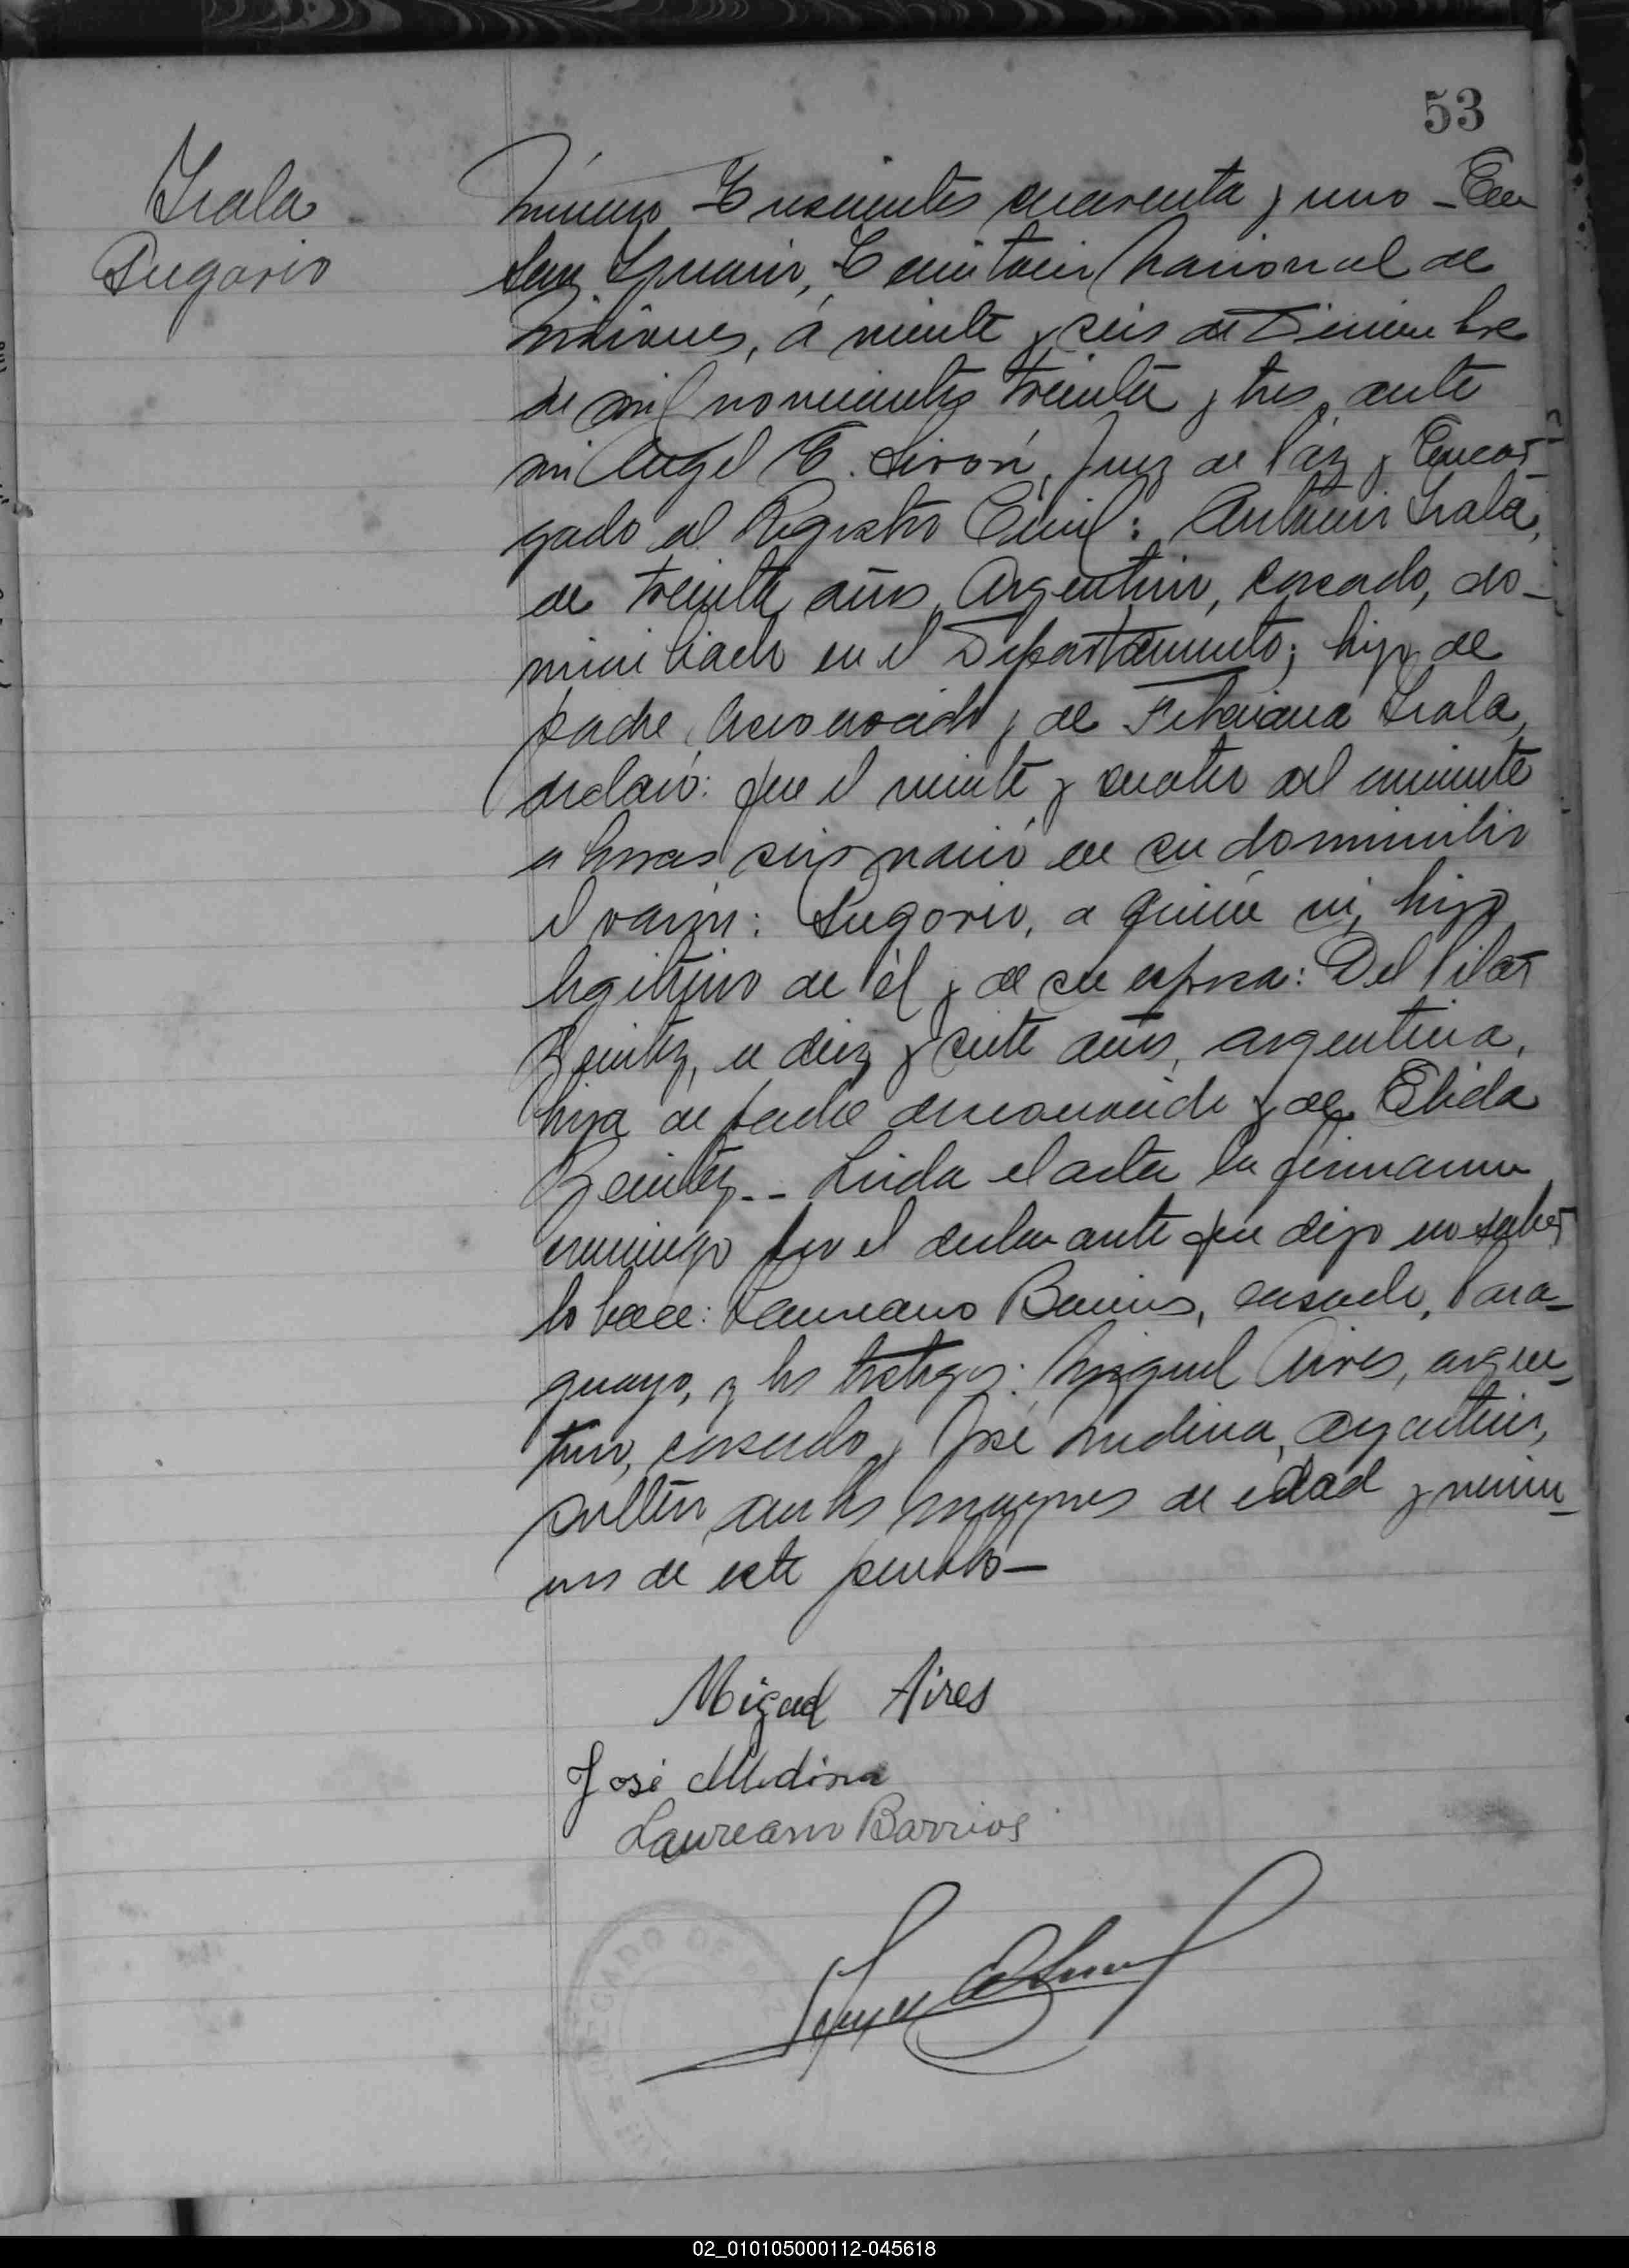 53
Irala
Sugorio
Número Trescientos cuarenta y uno - En
San Ignacio, Territorio Nacional de
Misiones, á veinte y seis de Diciembre
de mil novecientos treinta y tres, ante
mi Angel E. Girón, Juez de Páz y Encar-
gado del Registro Civil: Antonio Irala,
de treinta años, Argentino, casado, do-
miciliado en el Departamento; hijo de
padre desconocido y de Irala,
declaró: que el veinte y cuatro del corriente
a horas seis nació en su domicilio
el varón: Sugorio, a quien vi, hijo
legitimo de él y de su esposa: Del Pilar
Benitez, de diez y siete años, argentina,
hija de padre desconocido y de Elida
Benitez.-- Leida el acta la firmaron
conmigo por el declarante que dijo no saber
lo hace: Laureano Barrios, casado, Para-
guayo, y los testigos: Miguel Aires, argen-
tino, casado y José Medina, argentino,
soltero ambos mayores de edad y veci-
nos de este pueblo -
Miguel Aires
José Medina
Laureano Barrios
JUZGADO DE PAZ
02_010105000112-045618